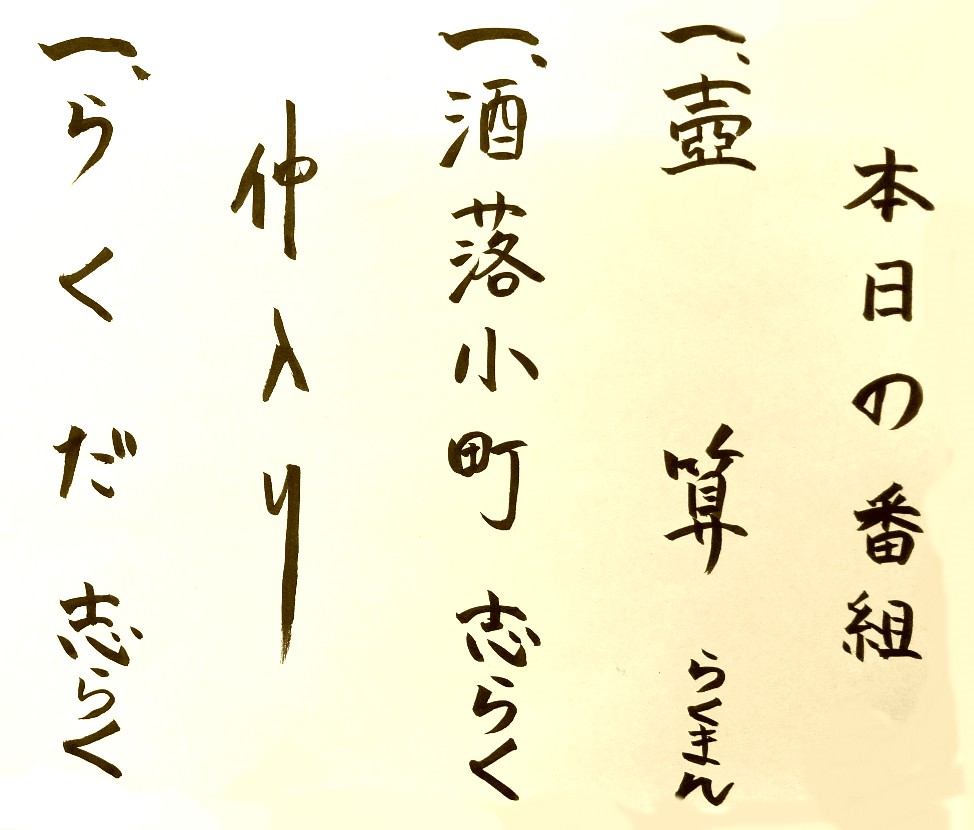 本日の番組
一、壺算 らくまん
一、洒落小町 志らく
仲入り
一、らくだ 志らく